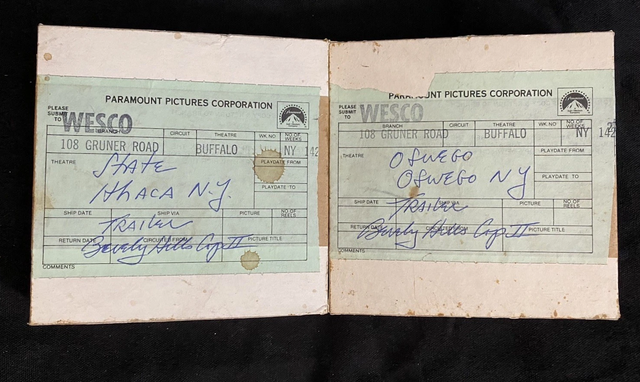 PARAMOUNT PICTURES CORPORATION
PLEASE SUBMIT TO
WESCO
BRANCH CIRCUIT THEATRE WK. NO NO. OF WEEKS
108 GRUNER ROAD BUFFALO NY 142
THEATRE PLAYDATE FROM
STATE
ITHACA N.Y.
PLAYDATE TO
SHIP DATE SHIP VIA PICTURE NO. OF REELS
TRAILER
RETURN DATE CIRCUITED FROM PICTURE TITLE
Beverly Hills Cop II
COMMENTS
PARAMOUNT PICTURES CORPORATION
PLEASE SUBMIT TO
WESCO
BRANCH CIRCUIT THEATRE WK. NO NO. OF WEEKS
108 GRUNER ROAD BUFFALO NY 142
THEATRE PLAYDATE FROM
OSWEGO
OSWEGO NY
PLAYDATE TO
SHIP DATE SHIP VIA PICTURE NO. OF REELS
TRAILER
RETURN DATE CIRCUITED FROM PICTURE TITLE
Beverly Hills Cop II
COMMENTS